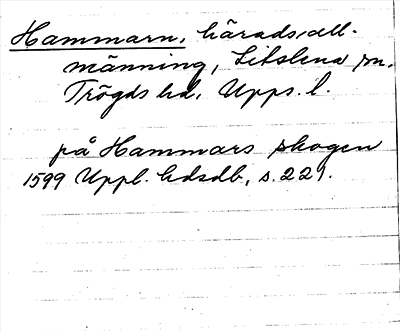 Hammarn, häradsall-
männing, Litslena sn.
Trögds hd, Upps. l.
på Hammars skogen
1599 Uppl. hdsdb, s. 221.